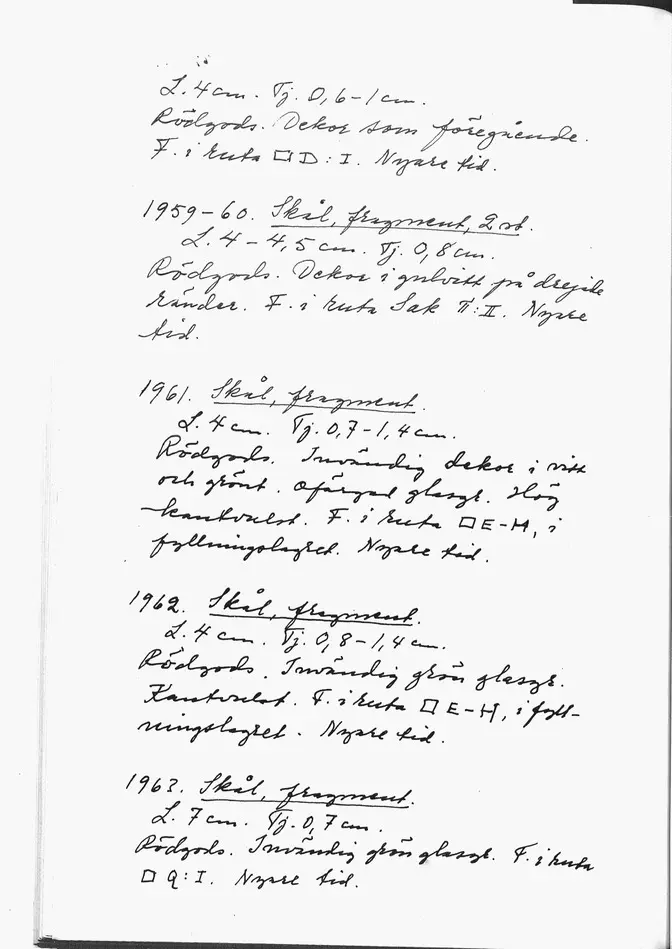 L. 4 cm. Tj. 0,6-1 cm.
Rödgods. Dekor som föregående.
F. i ruta □ D : I. Nyare tid.
1959-60. Skål, fragment, 2 st.
L. 4 - 4,5 cm. Tj. 0,8 cm.
Rödgods. Dekor i gulvitt på drejade
ränder. F. i ruta Sak II : II. Nyare
tid.
1961. Skål, fragment.
L. 4 cm. Tj. 0,7-1,4 cm.
Rödgods. Invändig dekor i vitt
och grönt. Ofärgad glasyr. Hög
kantvulst. F. i ruta □ E-H, i
fyllningslagret. Nyare tid.
1962. Skål, fragment.
L. 4 cm. Tj. 0,8-1,4 cm.
Rödgods. Invändig grön glasyr.
Kantvulst. F. i ruta □ E-H, i fyll-
ningslagret. Nyare tid.
1963. Skål, fragment.
L. 7 cm. Tj. 0,7 cm.
Rödgods. Invändig grön glasyr. F. i ruta
□ Q : I. Nyare tid.